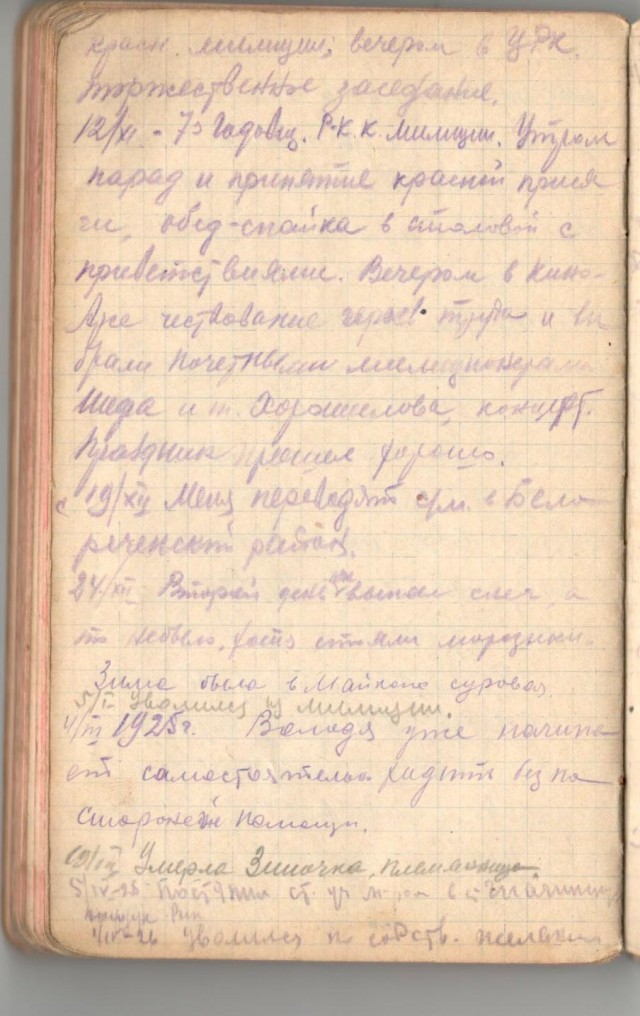 красн. милиции; вечером в ЦРК.
торжественное заседание.
12/XI - 7 годовщ. Р-К.К. Милиции. Утром
парад и принятие красной прися
ги, обед-спайка в столовой с
приветствиями. Вечером в кино-
Аре чествование героев труда и вы
брали почетными милиционерами
Шеда и т. Хорошилова, концерт.
Праздник прошел хорошо.
19/XII Меня переводят в Бело
реченский район.
24/XII Второй день как выпал снег, а
то не было, хотя стояли морозики.
Зима была в Майкопе суровая.
5/I Уволился из милиции.
4/III 1925г. Володя уже начина
ет самостоятельно ходить без по
сторонней помощи.
19/III Умерла Зиночка, племянница.
5/IV-26 Поступил ст. в ст.
Рик
1/IV-26 уволился по собств. желанию